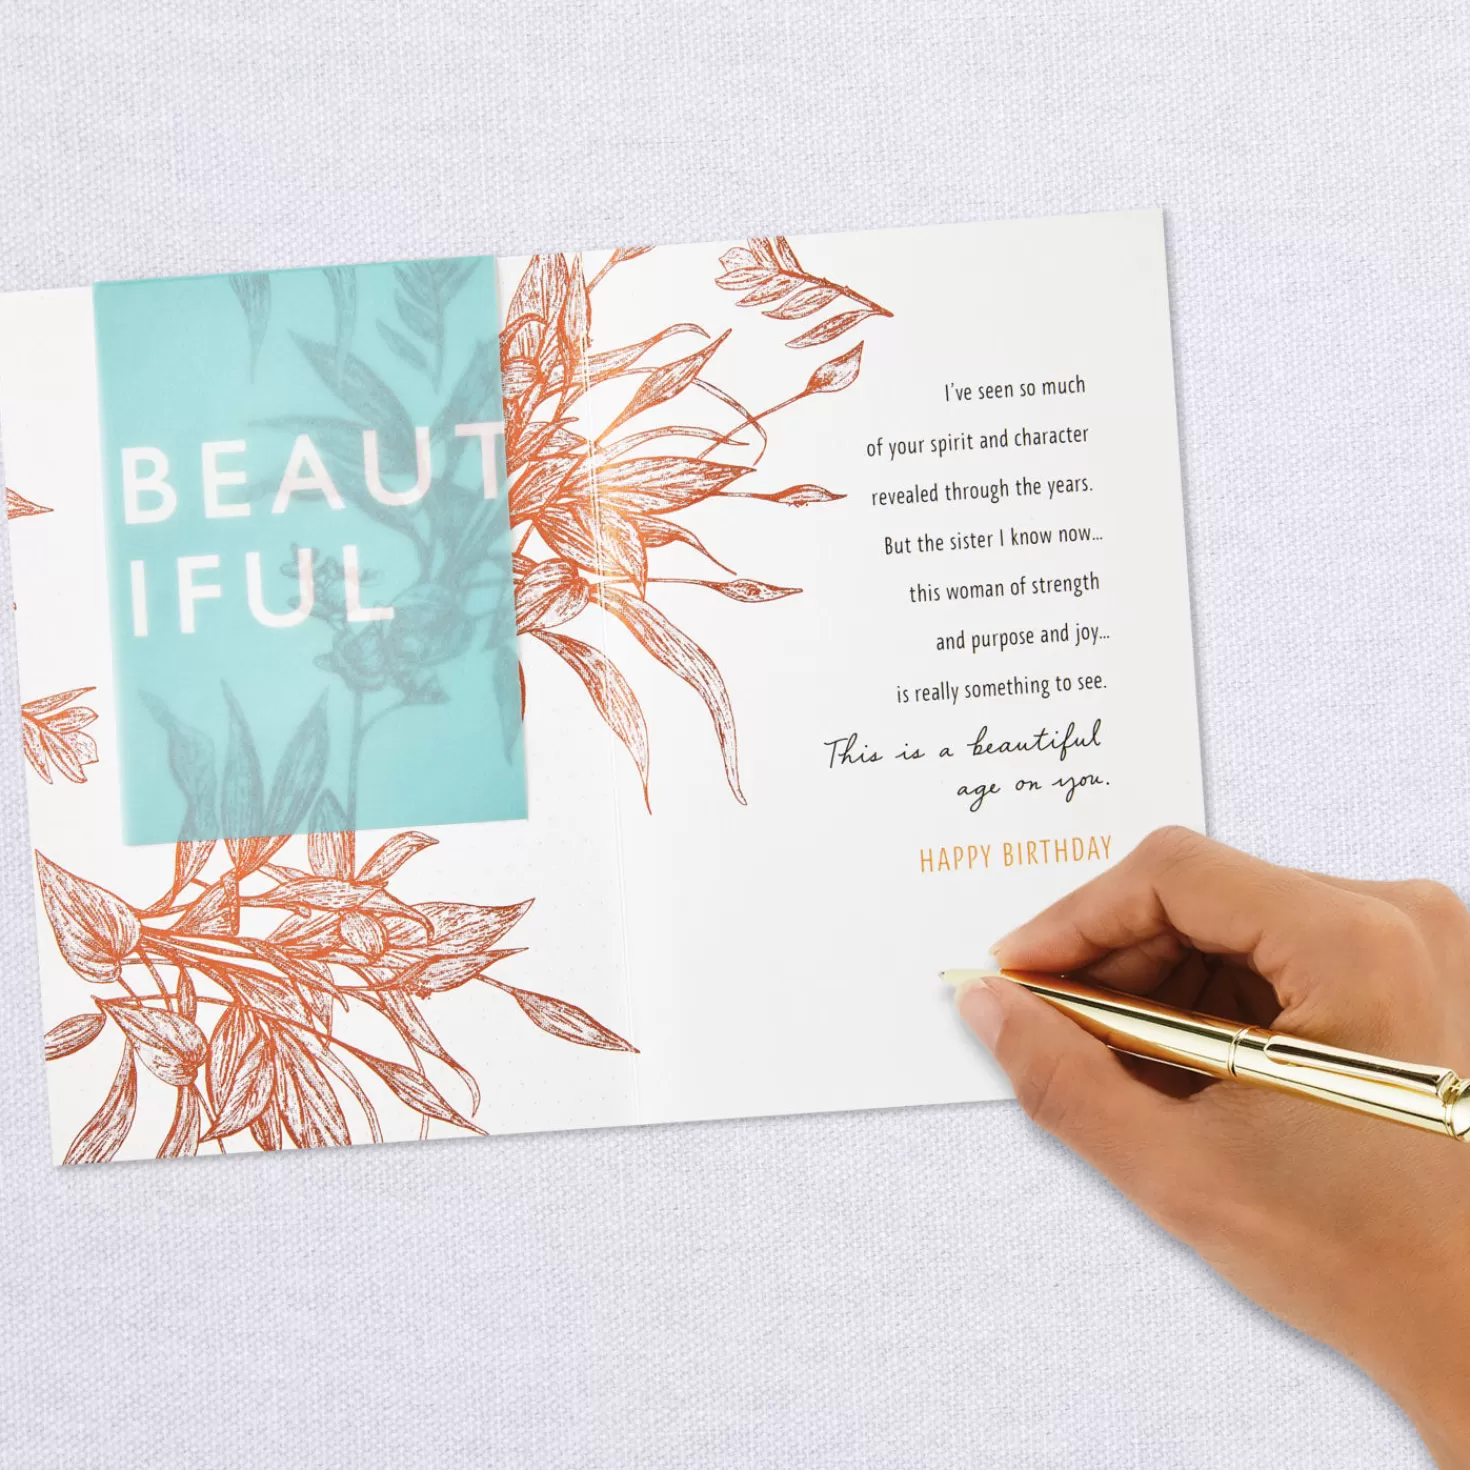 BEAUT
IFUL
I've seen so much
of your spirit and character
revealed through the years.
But the sister I know now...
this woman of strength
and purpose and joy...
is really something to see.
This is a beautiful
age on you.
HAPPY BIRTHDAY